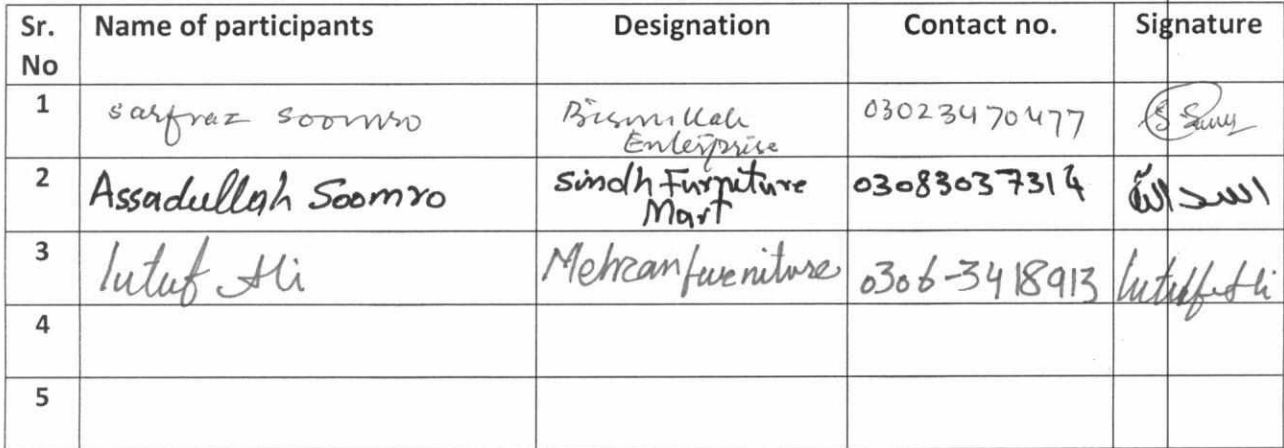 Sr. No Name of participants Designation Contact no. Signature
1 sarfraz soomro Bismillah Enterprise 03023470477
2 Assadullah Soomro Sindh Furniture Mart 03083037314 اسداللّٰہ
3 lutuf Ali Mehran fureniture 0306-3418913 lutuff Ali
4
5